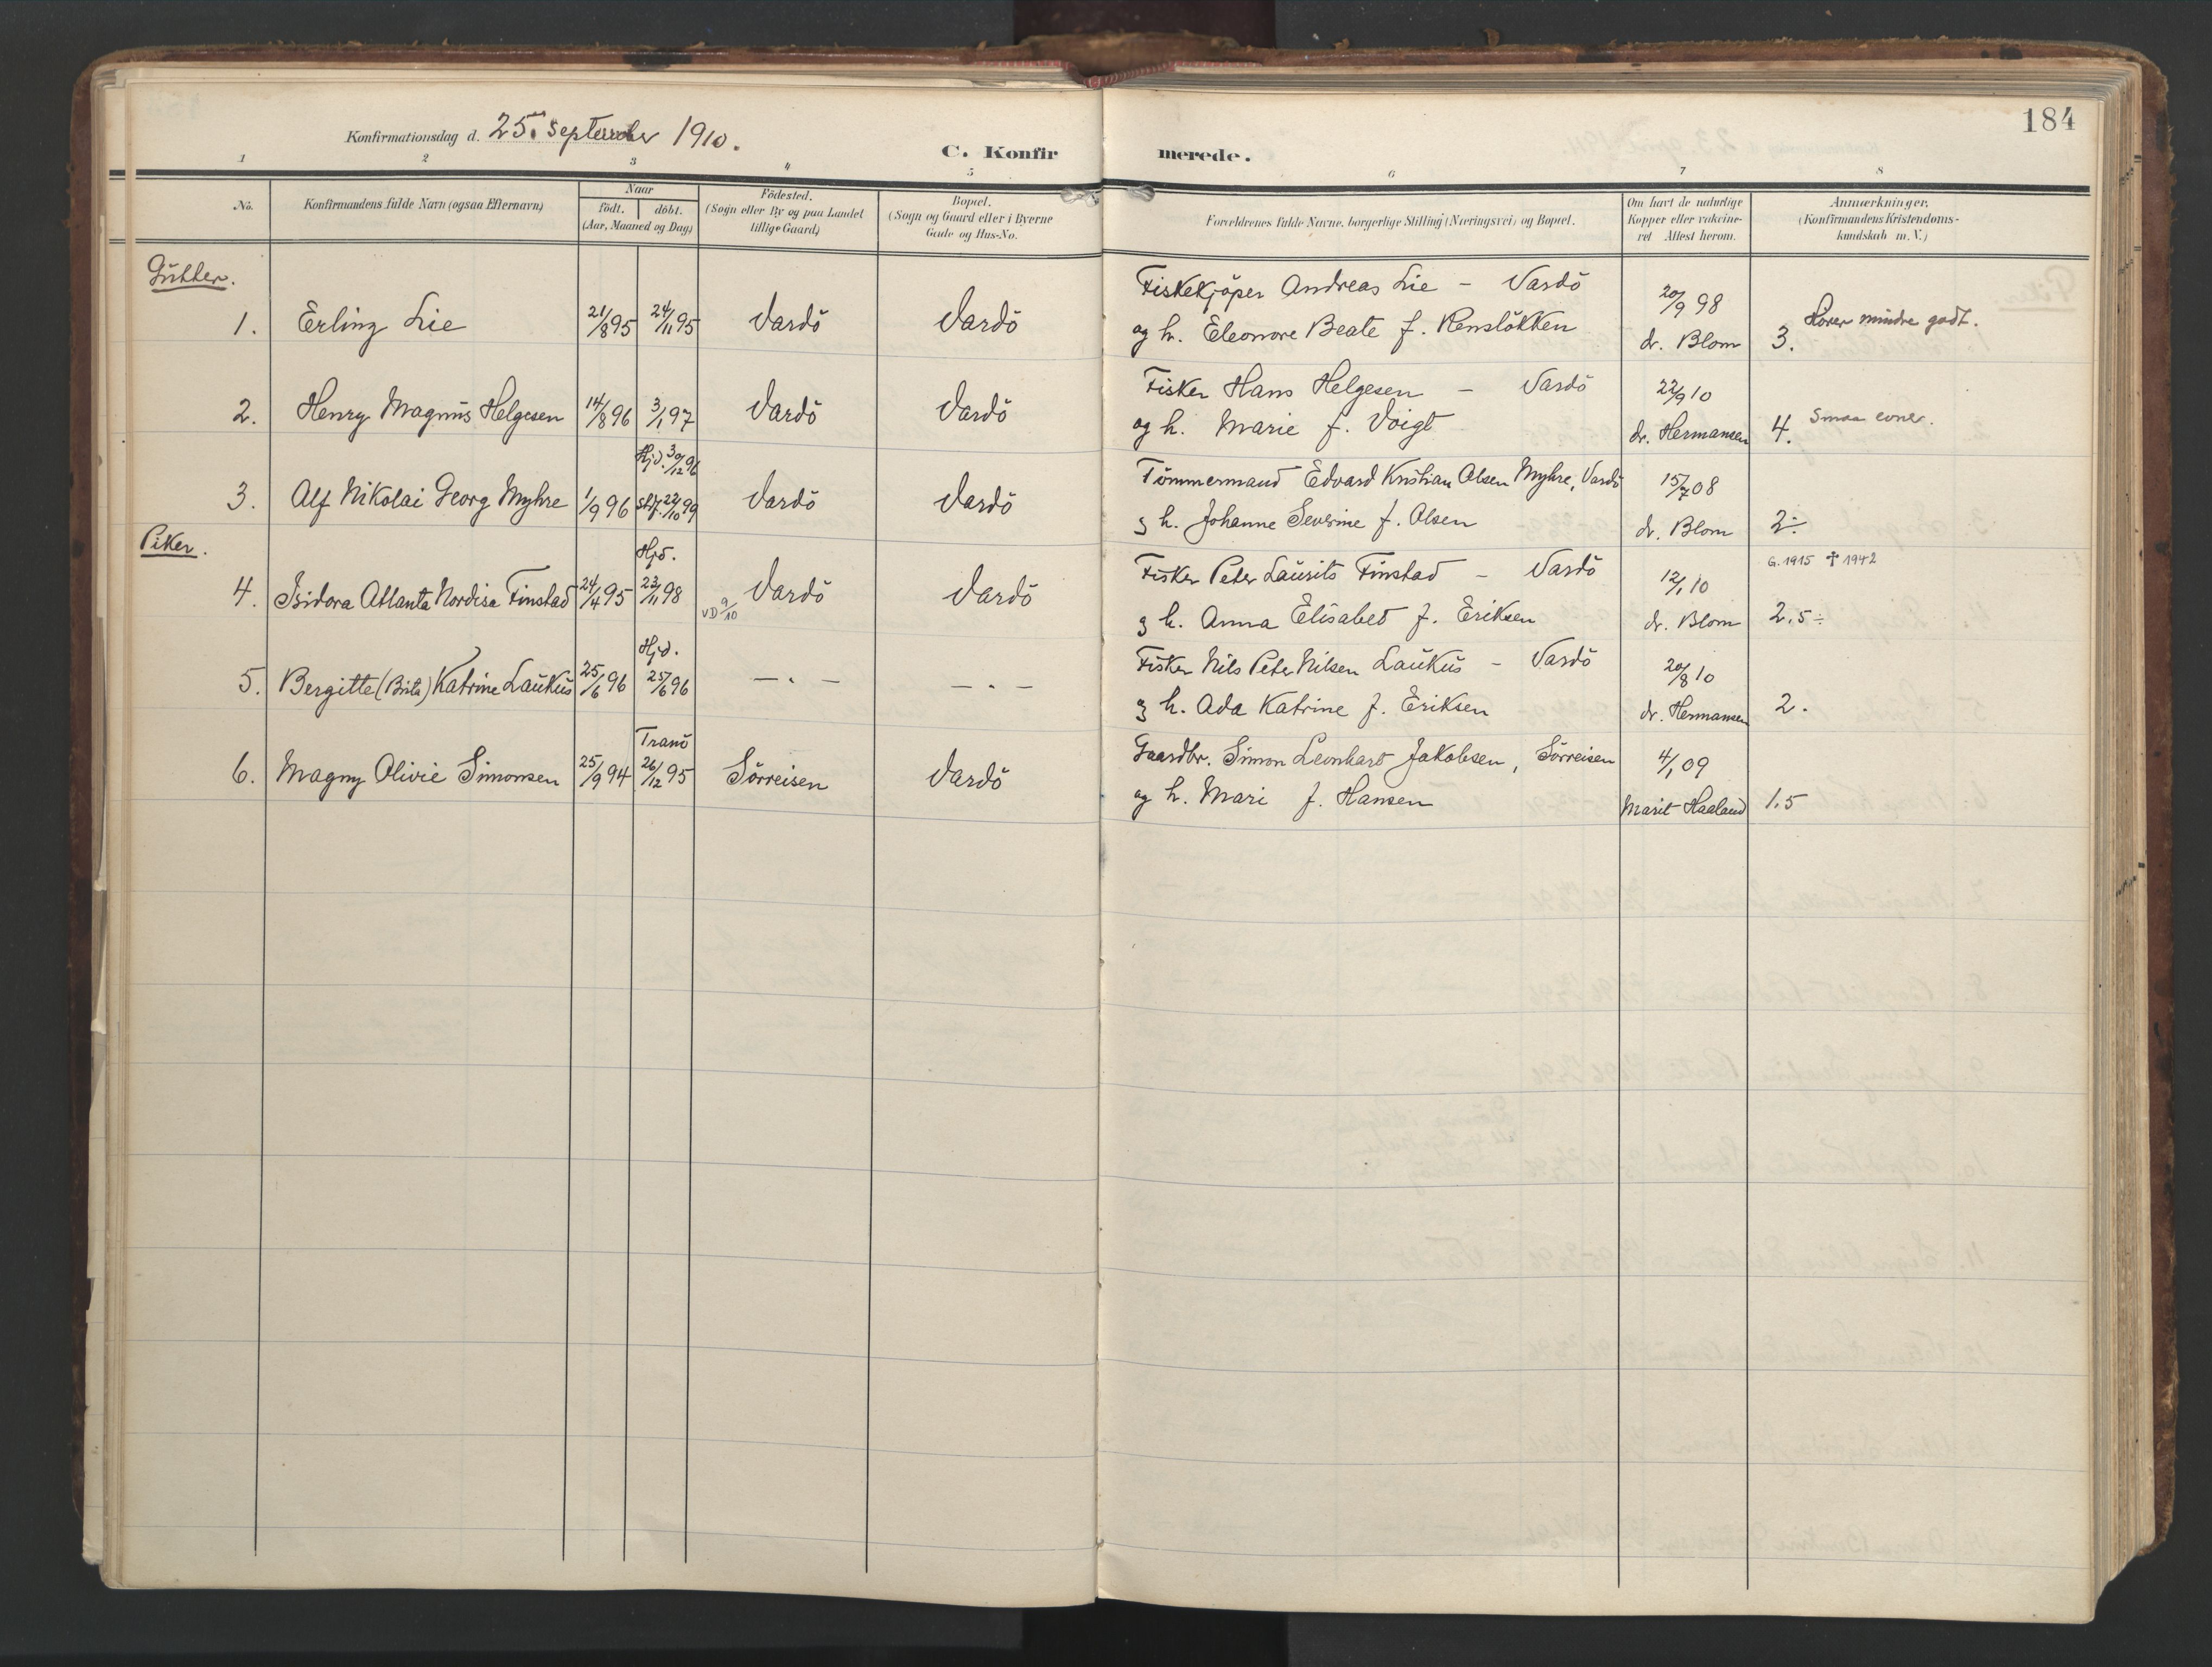 184
Konfirmationsdag d. 25. September 1910.
C. Konfirmerede.
1 2 3 4 5 6 7 8
No.
Konfirmandens fulde Navn (ogsaa Efternavn)
Naar
födt. | döbt.
(Aar, Maaned og Dag)
Födested.
(Sogn eller By og paa Landet
tillige Gaard)
Bopæl.
(Sogn og Gaard eller i Byerne
Gade og Hus-No.
Forældrenes fulde Navne, borgerlige Stilling (Næringsvei) og Bopæl.
Om havt de naturlige
Kopper eller vakcine-
ret Attest herom.
Anmærkninger.
(Konfirmandens Kristendoms-
kundskab m. V.)
Gütter.
1. Erling Lie 21/8 95 24/11 95 Vardö Vardö
Fiskekjöper Andreas Lie - Vardö
og h. Eleonore Beate f. Rensløkken
20/9 98
dr. Blom
3. Hører mindre godt.
2. Henry Magnüs Helgesen 14/8 96 3/1 97 Vardö Vardö
Fisker Hans Helgesen - Vardö
og h. Marie f. Voigt
22/9 10
dr. Hermansen
4. Smaa evner.
3. Alf Nikolai Georg Myhre 1/9 96 Hjd. 30/12 96 Stf. 22/10 99 Vardö Vardö
Tömmermand Edvard Kristian Olsen Myhre, Vardö
og h. Johanne Severine f. Olsen
15/7 08
dr. Blom
2÷
Piker.
4. Isidora Atlanta Nordisa Finstad 24/4 95 Hjd. 23/11 98 Vardö Vardö
VD 9/10
Fisker Peter Laürits Finstad - Vardö
og h. Anna Elisabet f. Eriksen
12/1 10
dr. Blom
G. 1915 ✝ 1942
2,5÷
5. Bergitte (Brita) Katrine Laüküs 25/6 96 Hjd. 25/6 96 — . — — . —
Fisker Nils Peter Nilsen Laüküs - Vardö
og h. Ada Katrine f. Eriksen
20/8 10
dr. Hermansen
2.
6. Magny Olivie Simonsen 25/9 94 Tranö 26/12 95 Sörreisen Vardö
Gaardbr. Simon Leonhard Jakobsen, Sörreisen
og h. Mari f. Hansen
4/1 09
Marit Haaland
1,5